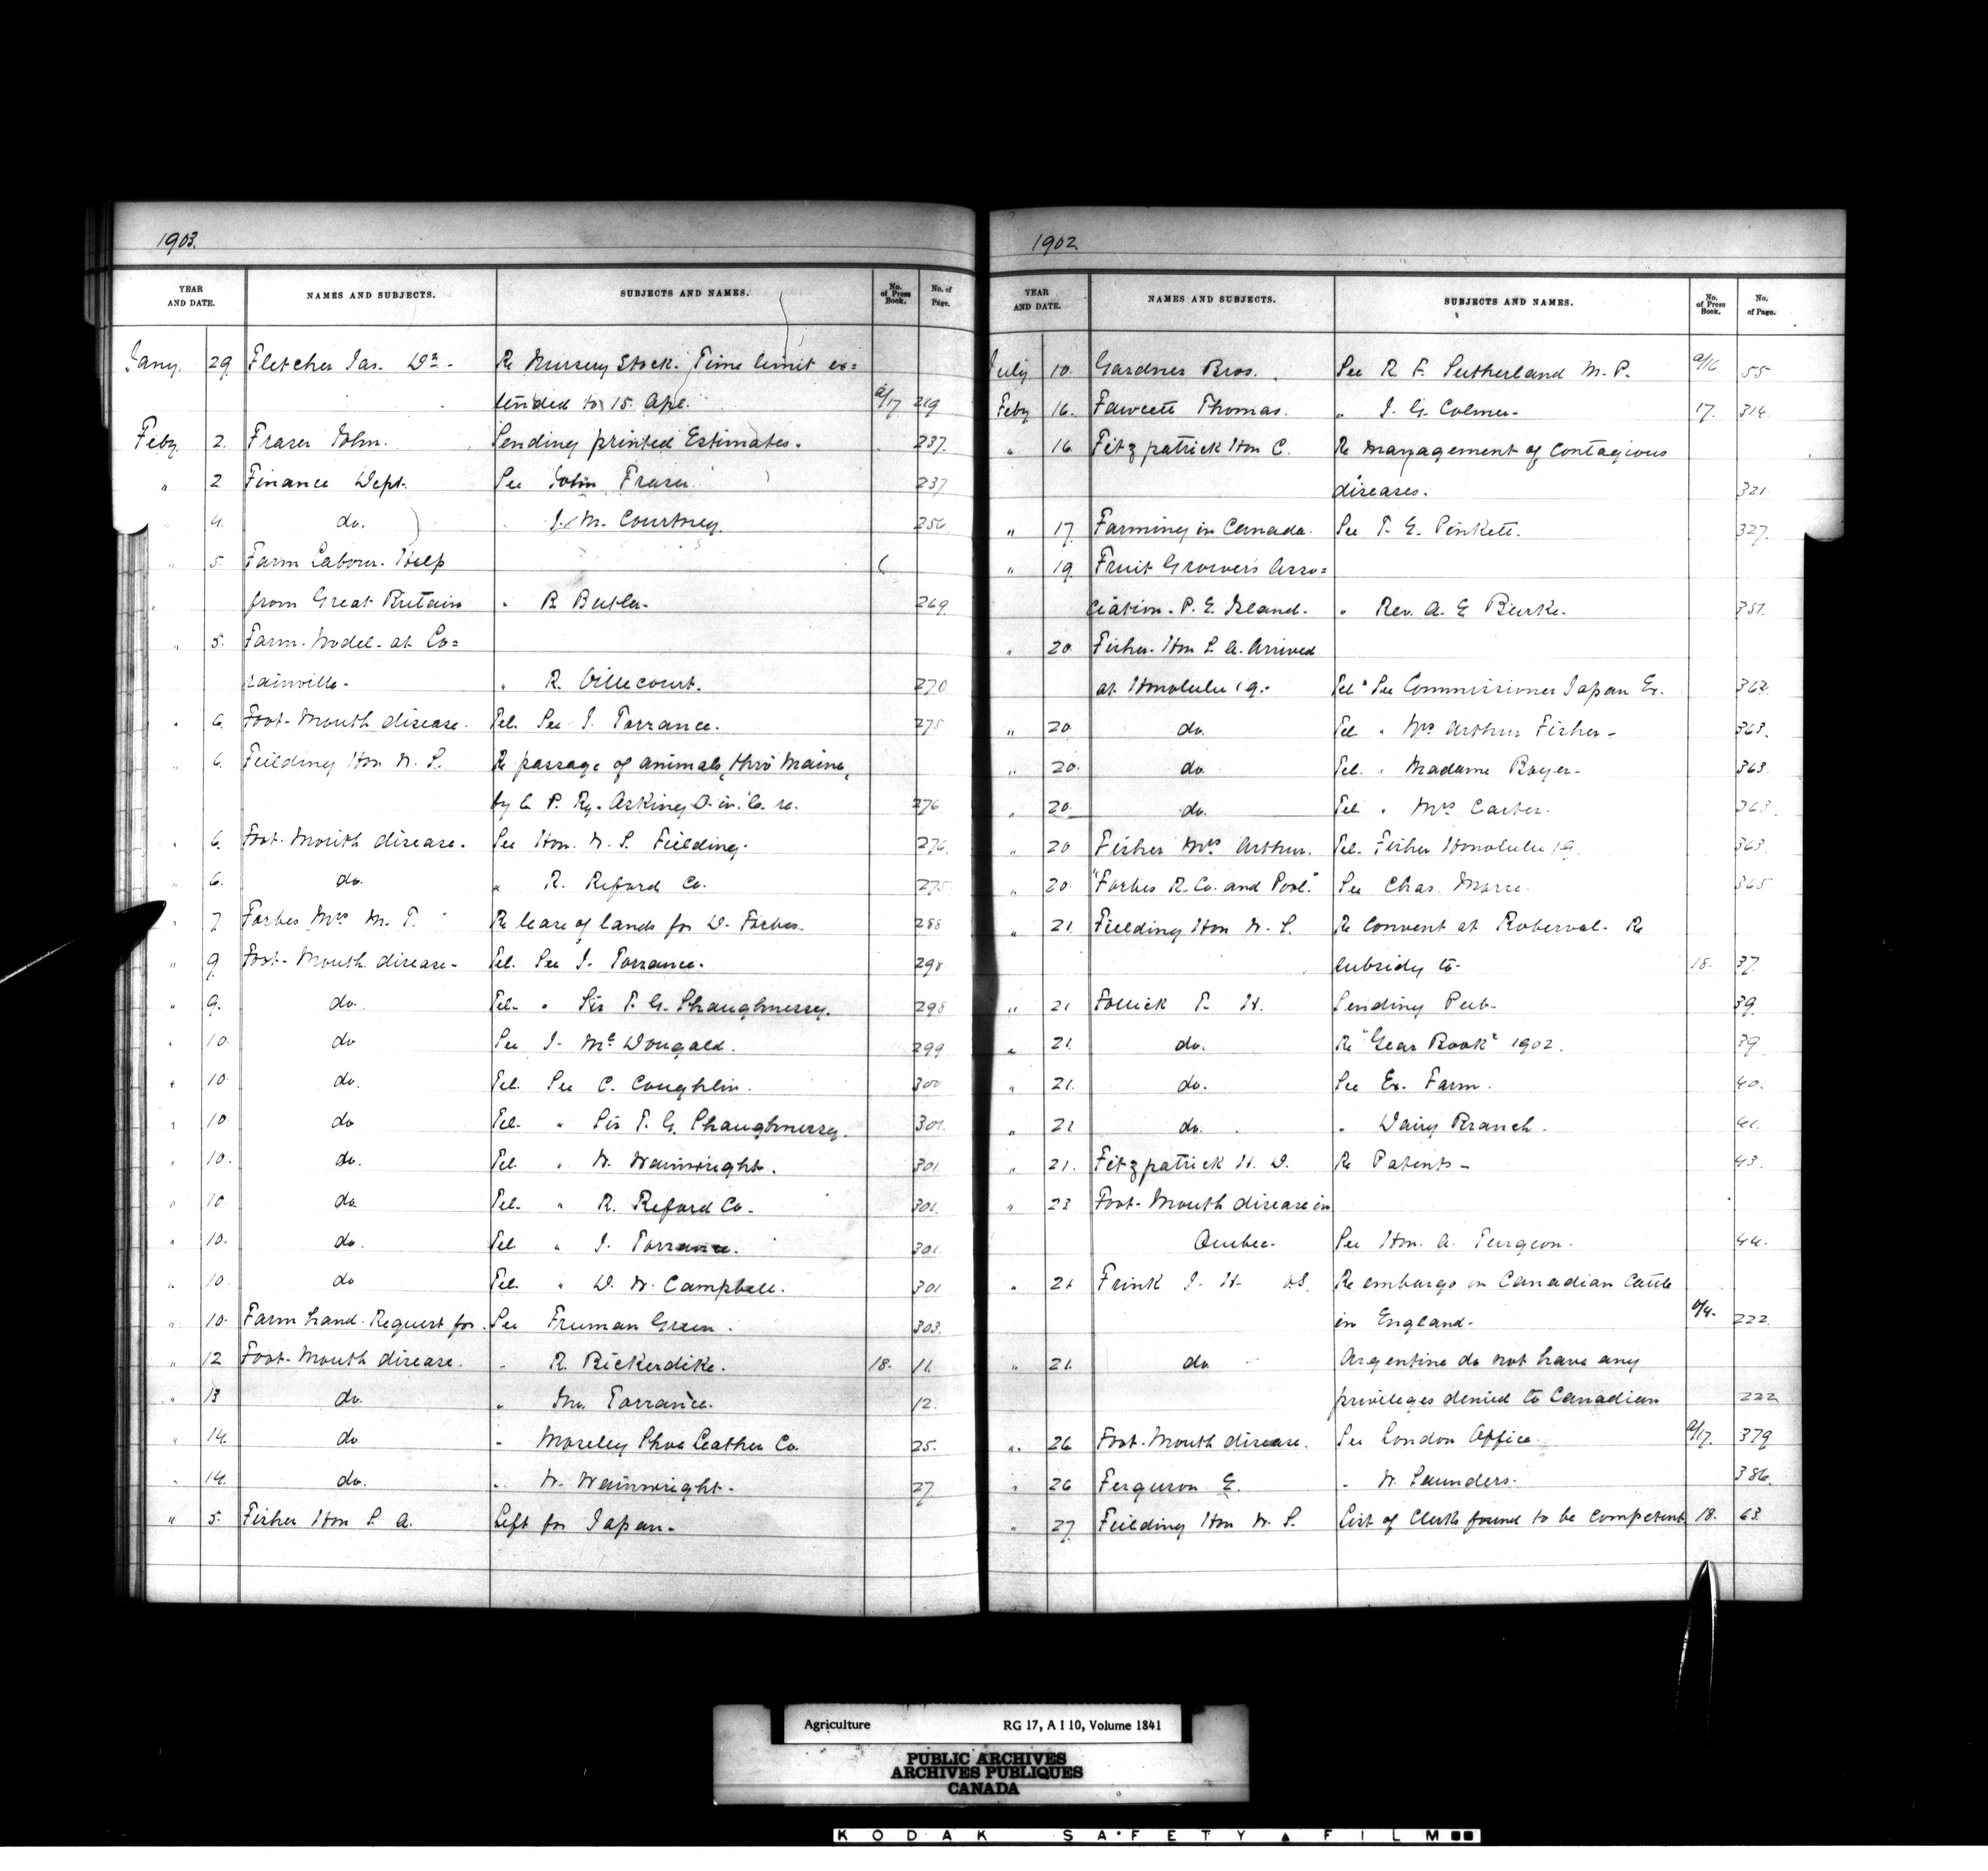 1903.
YEAR AND DATE. NAMES AND SUBJECTS. SUBJECTS AND NAMES. No. of Press Book. No. of Page.
Jany. 29 Fletcher Jas. Dr. Re Nursery Stock. Time limit ex=
tended to 15 Apl. a/17 219
Feby 2. Fraser John. Sending printed Estimates. 237.
" 2 Finance Dept. See John Fraser. 237
" 4. do. J. M. Courtney. 256
" 5. Farm Labour. Help
from Great Britain " R Butler. 269.
" 5. Farm-Model-at Lo=
rainville. " R. Oillecourt. 270
" 6. Foot-Mouth disease. Tel. See J. Torrance. 275
" 6. Fielding Hon W. S. Re passage of animals, thro' Maine,
by C. P. Ry. Asking O. in. C. re. 276
" 6. Foot-Mouth disease. See Hon. W. S. Fielding. 276.
" 6. do. " R. Reford Co. 275
" 7 Forbes Mrs M. T. Re lease of lands for D. Forbes. 288
" 9 Foot-Mouth disease- Tel. See J. Torrance. 298
" 9. do. Tel. " Sir T. G. Shaughnessy. 298
" 10. do See J. McDougald. 299
" 10. do. Tel. See C. Coughlin. 300
" 10 do Tel. " Sir T. G. Shaughnessy. 301.
" 10. do. Tel. " W. Wainwright. 301
" 10. do Tel. " R. Reford Co. 301.
" 10. do. Tel. " J. Torrance. 301
" 10. do Tel. " D. W. Campbell. 301
" 10. Farm hand. Request for. See Truman Green. 303.
" 12 Foot-Mouth disease. " R. Bickerdike. 18. 11.
" 13 do. " Jno. Torrance. 12.
" 14. do " Moseley Shoe Leather Co. 25.
" 14. do. " W. Wainwright. 27.
" 5. Fisher Hon S. A. Left for Japan.
1902.
YEAR AND DATE. NAMES AND SUBJECTS. SUBJECTS AND NAMES. No. of Press Book. No. of Page.
July 10. Gardner Bros. See R. F. Sutherland M. P. a/16 55
Feby 16. Fawcett Thomas. " J. G. Colmer. 17. 314.
" 16 Fitzpatrick Hon C. Re management of Contagious
diseases. 321.
" 17 Farming in Canada. See T. E. Pinkett. 327.
" 19 Fruit Growers Asso=
ciation. P. E. Island. " Rev. A. E Burke. 351.
" 20 Fisher. Hon S. A. Arrived
at Honolulu 19. Tel. See Commissioner Japan Ex. 362.
" 20 do. Tel " Mrs Arthur Fisher. 363.
" 20. do Tel. " Madame Boyer. 363
" 20 do Tel. " Mrs Carter. 363.
" 20 Fisher Mrs Arthur. Tel. Fisher Honolulu 19. 363.
" 20. "Forbes R. Co. and Pool." See Chas. Morse. 365
" 21. Fielding Hon W. S. Re Convent at Roberval. Re
subsidy to. 18. 37.
" 21 Follick T. H. Sending Pub. 39.
" 21. do. Re "Year Book" 1902. 39.
" 21. do. See Ex. Farm. 40.
" 21 do. " Dairy Branch. 41.
" 21. Fitzpatrick H. D. Re Patents- 43.
" 23 Foot-Mouth disease in
Quebec. See Hon. A. Turgeon. 44.
" 21 Frink J. H. V.S. Re embargo on Canadian Cattle
in England. 222.
" 21. do Argentine do not have any
privileges denied to Canadian 222
" 26 Foot-Mouth disease. See London Office. a/17. 379
" 26 Ferguson E. " W. Saunders. 386.
" 27 Fielding Hon W. S. List of Clerks found to be competent. 18. 63.
Agriculture RG 17, A I 10, Volume 1841
PUBLIC ARCHIVES
ARCHIVES PUBLIQUES
CANADA
KODAK SAFETY FILM